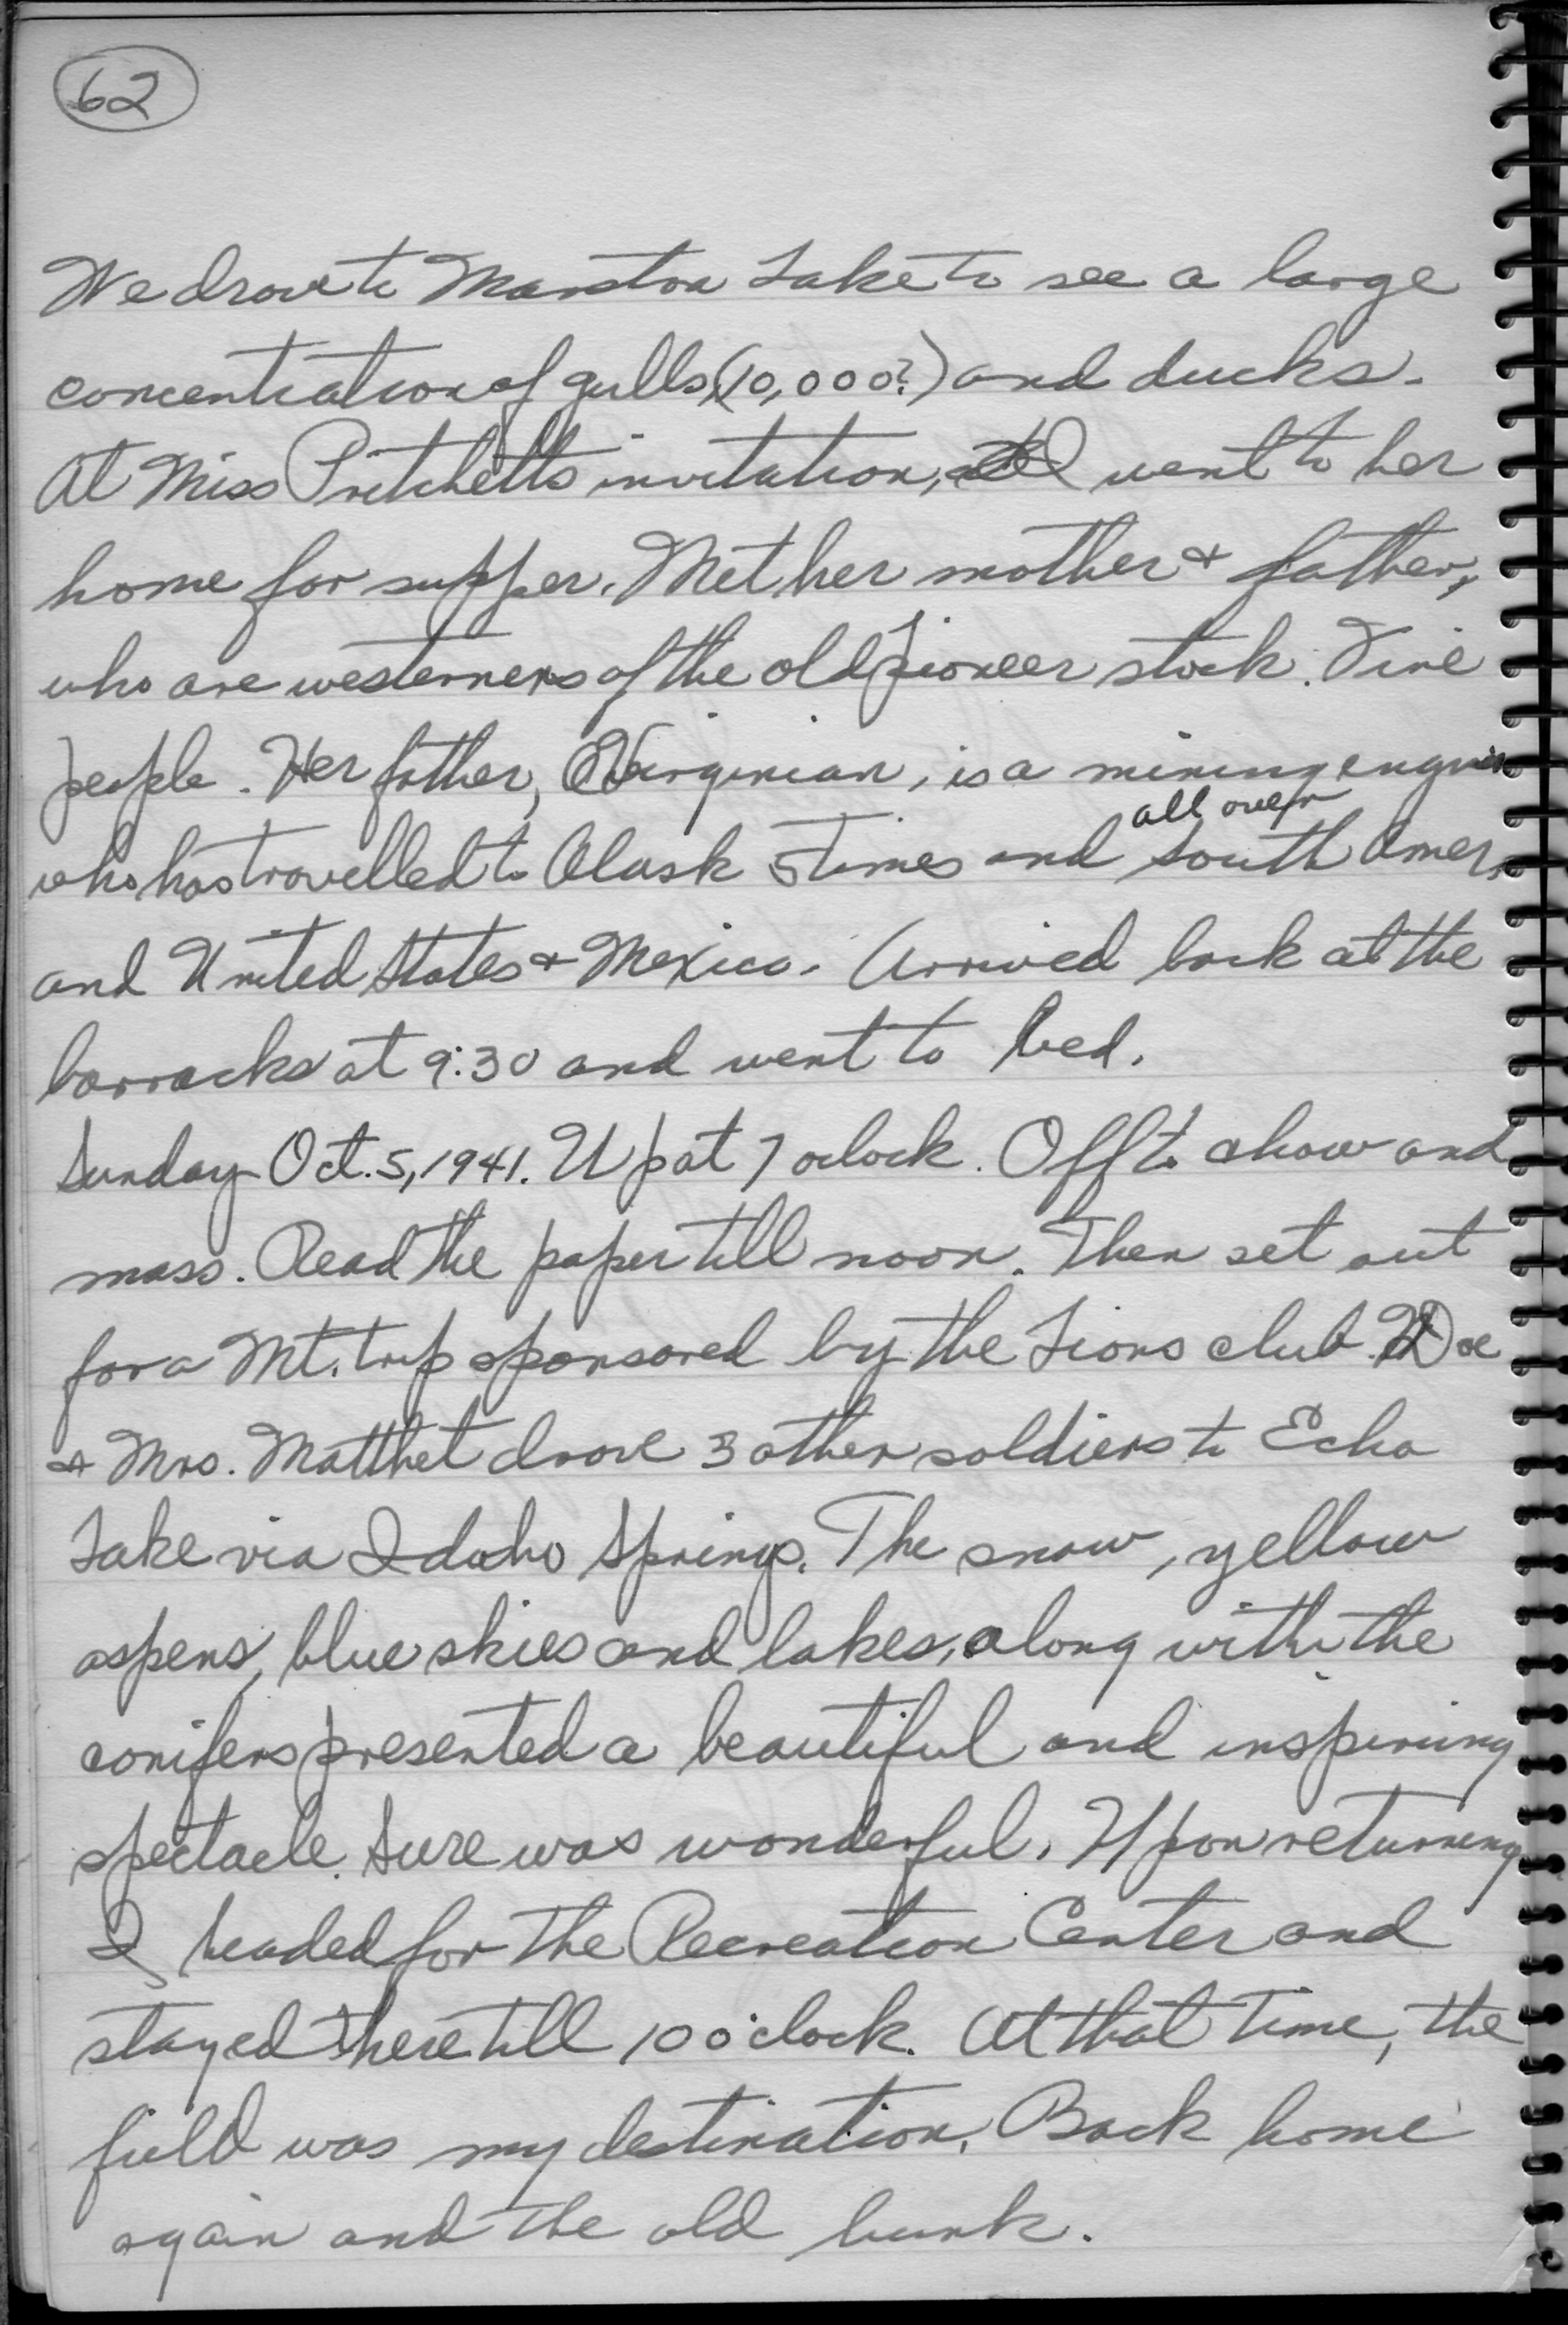 62
We drove to Marston Lake to see a large
concentration of gulls, (10,000?) and ducks.
At Miss Pritchetts invitation, I went to her
home for supper. Met her mother & father,
who are westerners of the old pioneer stock. Fine
people. Her father, a Virginian, is a mining engineer
all over
who has travelled to Alask 5 times and South Amer.
and United States & Mexico. Arrived back at the
barracks at 9:30 and went to bed.
Sunday Oct. 5, 1941. Up at 7 oclock. Off to chow and
mass. Read the paper till noon. Then set out
for a Mt. trip sponsored by the Lions club. Doc
& Mrs. Matthet drove 3 other soldiers to Echo
Lake via Idaho Springs. The snow, yellow
aspens, blue skies and lakes, along with the
conifers presented a beautiful and inspiring
spectacle. Sure was wonderful. Upon returning
I headed for the Recreation Center and
stayed there till 10 o'clock. At that time, the
field was my destination. Back home
again and the old bunk.